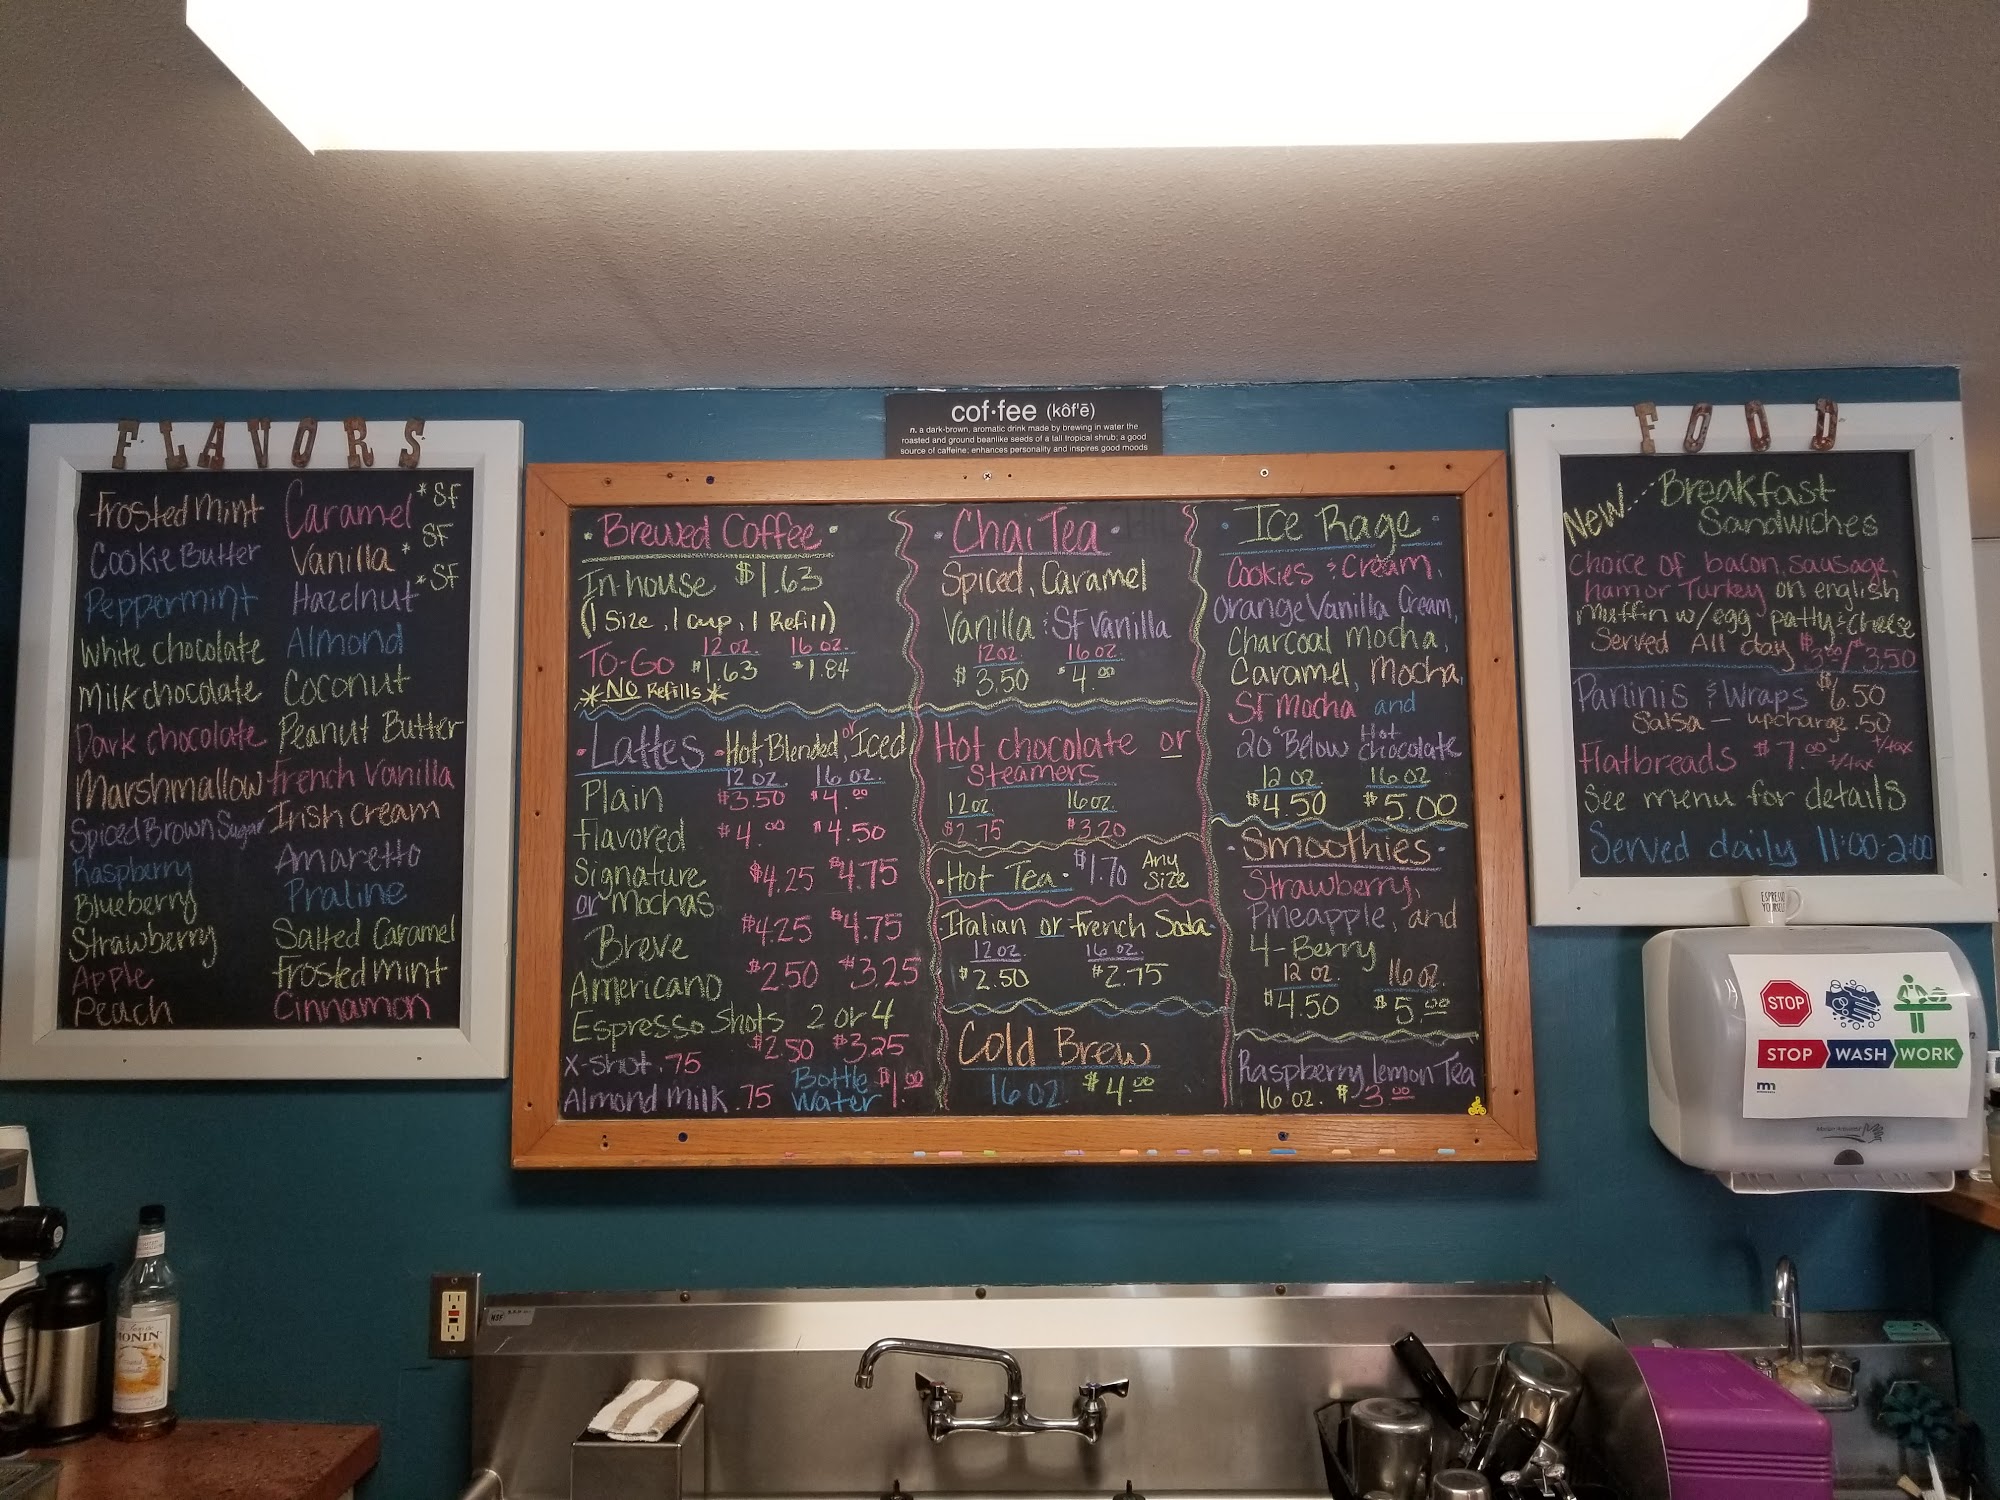 cof·fee (kôf'ē)
n. a dark-brown, aromatic drink made by brewing in water the
roasted and ground beanlike seeds of a tall tropical shrub; a good
source of caffeine; enhances personality and inspires good moods
FLAVORS
Frosted Mint
Cookie Butter
Peppermint
White chocolate
Milk chocolate
Dark chocolate
Marshmallow
Spiced Brown Sugar
Raspberry
Blueberry
Strawberry
Apple
Peach
Caramel *SF
Vanilla * SF
Hazelnut *SF
Almond
Coconut
Peanut Butter
French Vanilla
Irish Cream
Amaretto
Praline
Salted Caramel
Frosted Mint
Cinnamon
· Brewed Coffee ·
In house $1.63
(1 Size, 1 cup, 1 Refill)
12 oz. 16 oz.
To-Go $1.63 $1.84
*No Refills*
· Lattes · Hot, Blended or Iced
12 oz. 16 oz.
Plain $3.50 $4.00
Flavored $4.00 $4.50
Signature $4.25 $4.75
or Mochas
Breve $4.25 $4.75
Americano $2.50 $3.25
Espresso Shots 2 or 4
$2.50 $3.25
X-Shot .75
Almond Milk .75
Bottle $1.00
Water
· Chai Tea ·
Spiced, Caramel
Vanilla : SF Vanilla
12 oz. 16 oz.
$3.50 $4.00
Hot chocolate or
Steamers
12 oz. 16 oz.
$2.75 $3.20
· Hot Tea · $1.70 Any
Size
Italian or French Soda
12 oz. 16 oz.
$2.50 $2.75
Cold Brew
16 oz. $4.00
· Ice Rage ·
Cookies & Cream,
Orange Vanilla Cream,
Charcoal Mocha,
Caramel, Mocha,
SF Mocha and
20° Below Hot
chocolate
12 oz. 16 oz
$4.50 $5.00
· Smoothies ·
Strawberry,
Pineapple, and
4-Berry
12 oz. 16 oz.
$4.50 $5.00
Raspberry Lemon Tea
16 oz. $3.00
FOOD
New... Breakfast
Sandwiches
Choice of bacon, sausage,
ham or Turkey on english
muffin w/egg patty & cheese
Served All day $3.00/$3.50
Paninis & Wraps $6.50
Salsa - upcharge .50
Flatbreads $7.00 +/tax
+/tax
See menu for details
Served daily 11:00-2:00
ESPRESSO
YOURSELF
STOP
STOP WASH WORK
mn
MONIN
NSF